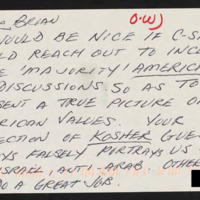 BRIAN O.W)
OULD BE NICE IF C-S
LD REACH OUT TO INCL
E 'MAJORITY' AMERIC
DISCUSSIONS. SO AS TO
SENT A TRUE PICTURE O
RICAN VALUES. YOUR
ECTION OF KOSHER GUE
YS FALSELY PIRTRAYS US
ISRAEL ANTI-ARAB. OTHE
O A GREAT JOB.